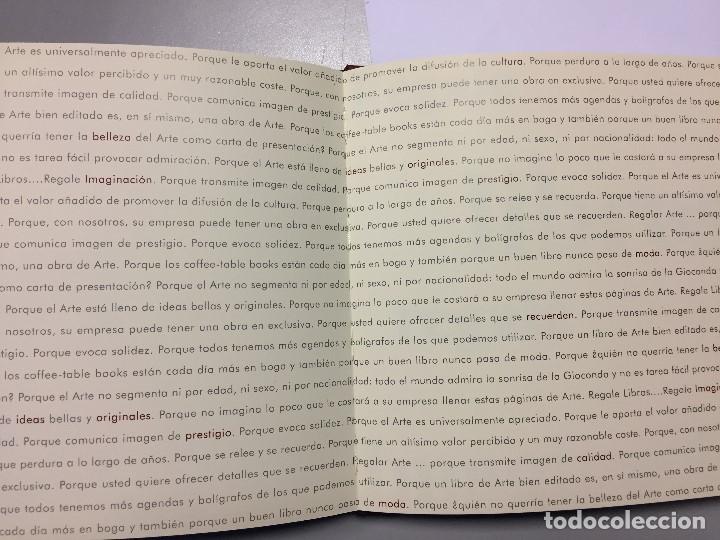 Arte es universalmente apreciado. Porque le aporta el valor añadido de promover la difusión de la cultura. Porque perdura a lo largo de años. Porque s
un altísimo valor percibido y un muy razonable coste. Porque, con nosotros, su empresa puede tener una obra en exclusiva. Porque usted quiere ofrecer
transmite imagen de calidad. Porque comunica imagen de prestigio. Porque evoca solidez. Porque todos tenemos más agendas y bolígrafos de los que
e Arte bien editado es, en sí mismo, una obra de Arte. Porque los coffee-table books están cada día más en boga y también porque un buen libro nunc
querría tener la belleza del Arte como carta de presentación? Porque el Arte no segmenta ni por edad, ni sexo, ni por nacionalidad: todo el mundo admir
no es tarea fácil provocar admiración. Porque el Arte está lleno de ideas bellas y originales. Porque no imagina lo poco que le costará a su empresa l
Libros....Regale Imaginación. Porque transmite imagen de calidad. Porque comunica imagen de prestigio. Porque evoca solidez. Porque
ta el valor añadido de promover la difusión de la cultura. Porque perdura a lo largo de años. Porque se relee y se recuerda. Porque tiene un altísimo valor
. Porque, con nosotros, su empresa puede tener una obra en exclusiva. Porque usted quiere ofrecer detalles que se recuerden. Regalar Arte ... porqu
que comunica imagen de prestigio. Porque evoca solidez. Porque todos tenemos más agendas y bolígrafos de los que podemos utilizar. Porque un l
mo, una obra de Arte. Porque los coffee-table books están cada día más en boga y también porque un buen libro nunca pasa de moda. Porque ¿quién
omo carta de presentación? Porque el Arte no segmenta ni por edad, ni sexo, ni por nacionalidad: todo el mundo admira la sonrisa de la Gioconda
Porque el Arte está lleno de ideas bellas y originales. Porque no imagina lo poco que le costará a su empresa llenar estas páginas de Arte. Regale Libr
nosotros, su empresa puede tener una obra en exclusiva. Porque usted quiere ofrecer detalles que se recuerden. Porque transmite imagen de ca
tigio. Porque evoca solidez. Porque todos tenemos más agendas y bolígrafos de los que podemos utilizar. Porque un libro de Arte bien editado es,
los coffee-table books están cada día más en boga y también porque un buen libro nunca pasa de moda. Porque ¿quién no querría tener la be
n? Porque el Arte no segmenta ni por edad, ni sexo, ni por nacionalidad: todo el mundo admira la sonrisa de la Gioconda y no es tarea fácil provoca
de ideas bellas y originales. Porque no imagina lo poco que le costará a su empresa llenar estas páginas de Arte. Regale Libros....Regale Imagin
dad. Porque comunica imagen de prestigio. Porque evoca solidez. Porque el Arte es universalmente apreciado. Porque le aporta el valor añadido
que perdura a lo largo de años. Porque se relee y se recuerda. Porque tiene un altísimo valor percibido y un muy razonable coste. Porque, con nosot
exclusiva. Porque usted quiere ofrecer detalles que se recuerden. Regalar Arte ... porque transmite imagen de calidad. Porque comunica imagen
que todos tenemos más agendas y bolígrafos de los que podemos utilizar. Porque un libro de Arte bien editado es, en sí mismo, una obra de
cada día más en boga y también porque un buen libro nunca pasa de moda. Porque ¿quién no querría tener la belleza del Arte como carta d
todocoleccion.net